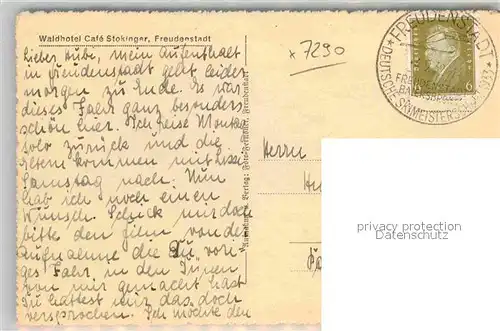 Waldhotel Café Stokinger, Freudenstadt
Lieber Bube, mein Aufenthalt
in Freudenstadt geht leider
morgen zu Ende. Es war
dieses Jahr ganz besonders
schön hier. Ich reise Montag
solo zurück und die
Eltern kommen mit
Samstag nach. Nun
hab ich noch einen
Wunsch. Schick mir doch
bitte den Film von der
Aufnahme die Du vori-
ges Jahr, in den
von mir gemacht hast
Du hattest mir das doch
versprochen. Ich möchte den
Verlag: Freudenstadt
x 7290
Herrn
FREUDENSTADT
DEUTSCHE SKIMEISTERSCH. 1933
6
privacy protection
Datenschutz